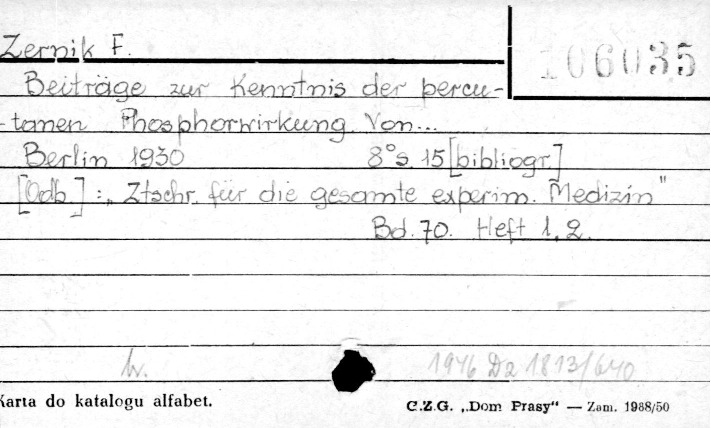 Zernik F.
106035
Beiträge zur Kenntnis der percu-
-tanen Phosphorwirkung. Von...
Berlin 1930 8° s. 15 [bibliogr.]
[Odb.] : „Ztschr. für die gesamte experim. Medizin"
Bd. 70. Heft 1, 2.
br.
1946 Da 1813/640
Karta do katalogu alfabet.
C.Z.G. „Dom Prasy“ — Zam. 1968/50